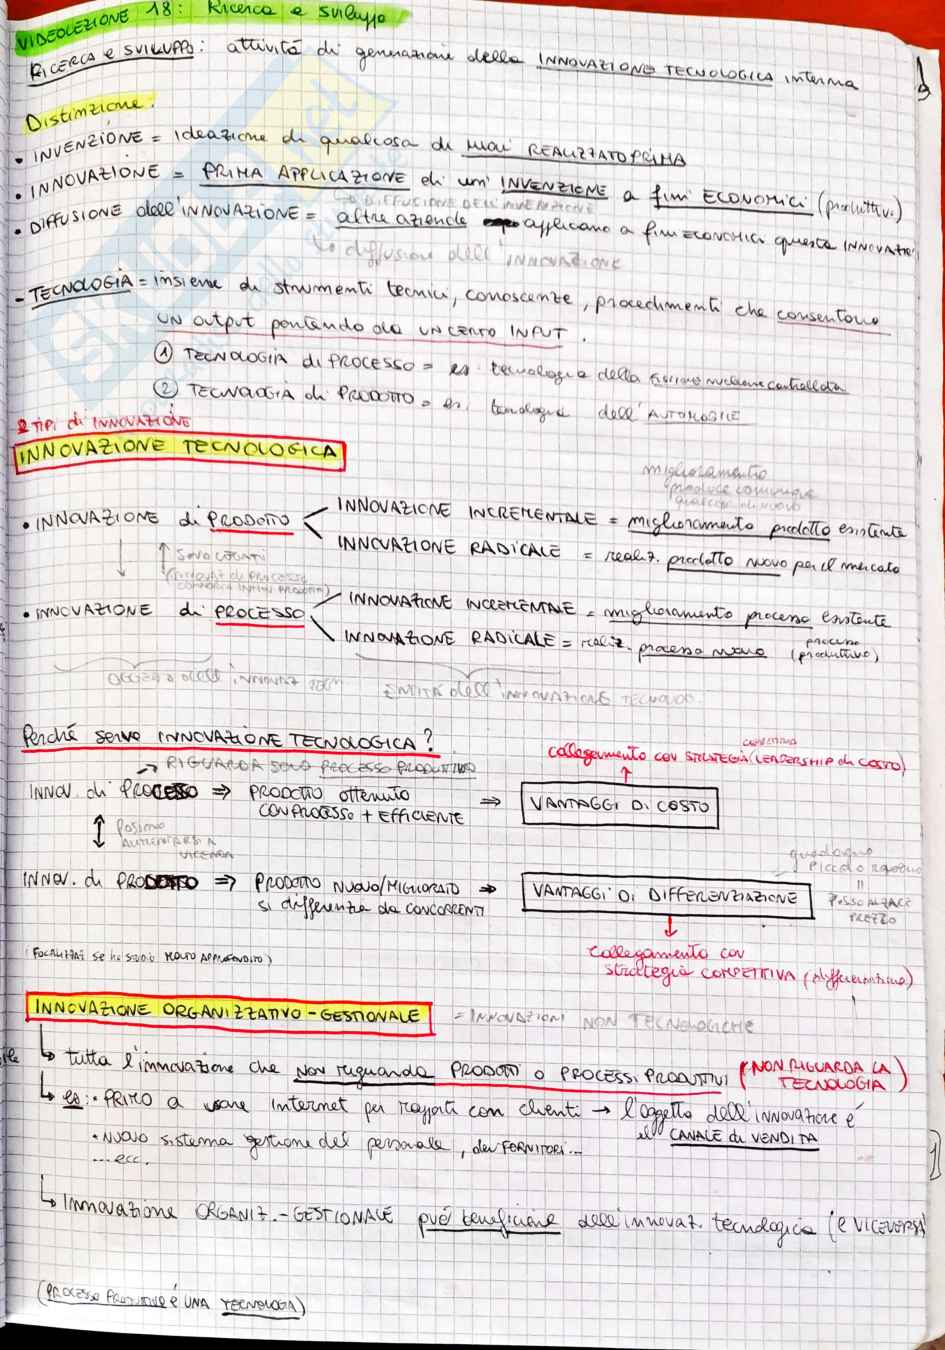 VIDEOLEZIONE 18: Ricerca e sviluppo
RICERCA e SVILUPPO: attività di generazione della INNOVAZIONE TECNOLOGICA interna
Distinzione:
• INVENZIONE = ideazione di qualcosa di mai REALIZZATO PRIMA
• INNOVAZIONE = PRIMA APPLICAZIONE di un' INVENZIONE a fini ECONOMICI (produttivi)
DIFFUSIONE DELL'INVENZIONE
• DIFFUSIONE dell'INNOVAZIONE = altre aziende applicano a fini ECONOMICI questa INNOVAZI
↳ diffusione dell'INNOVAZIONE
- TECNOLOGIA = insieme di strumenti tecnici, conoscenze, procedimenti che consentono
UN output partendo da UN CERTO INPUT.
① TECNOLOGIA di PROCESSO = es. tecnologia della fissione nucleare controllata
② TECNOLOGIA di PRODOTTO = es. tecnologia dell'AUTOMOBILE
2 TIPI di INNOVAZIONE
INNOVAZIONE TECNOLOGICA
miglioramento
produce comunque
qualcosa di nuovo
• INNOVAZIONE di PRODOTTO
INNOVAZIONE INCREMENTALE = miglioramento prodotto esistente
INNOVAZIONE RADICALE = realiz. prodotto nuovo per il mercato
↑ SONO LEGATI
• INNOVAZIONE di PROCESSO
INNOVAZIONE INCREMENTALE = miglioramento processo esistente
INNOVAZIONE RADICALE = realiz. processo nuovo (processo produttivo)
OGGETTO dell'INNOVAZ TECN
ENTITÀ dell'INNOVAZIONE TECNOLOG.
Perché serve INNOVAZIONE TECNOLOGICA?
collegamento con STRATEGIA (LEADERSHIP di COSTO)
→ RIGUARDA SOLO PROCESSO PRODUTTIVO
INNOV. di PROCESSO ⇒ PRODOTTO ottenuto ⇒ VANTAGGI DI COSTO
CON PROCESSO + EFFICIENTE
↕ Possono
ALIMENTARSI A
VICENDA
guadagno
Piccolo
=
POSSO ALZARE
PREZZO
INNOV. di PRODOTTO ⇒ PRODOTTO NUOVO/MIGLIORATO ⇒ VANTAGGI DI DIFFERENZIAZIONE
si differenzia da CONCORRENTI
collegamento con
strategia COMPETITIVA (differenziazione)
(FOCALIZZAZ se ho studio MOLTO APPROFONDITO)
INNOVAZIONE ORGANIZZATIVO-GESTIONALE = INNOVAZIONI NON TECNOLOGICHE
↳ tutta l'innovazione che NON riguarda PRODOTTI O PROCESSI PRODUTTIVI (NON RIGUARDA LA TECNOLOGIA)
↳ es: • PRIMO a usare internet per rapporti con clienti → l'oggetto dell'INNOVAZIONE è
il CANALE di VENDITA
• NUOVO sistema gestione del personale, dei FORNITORI...
...ecc.
↳ Innovazione ORGANIZ.-GESTIONALE può beneficiare dell'innovaz. tecnologica (e VICEVERSA
(PROCESSO PRODUTTIVO è UNA TECNOLOGIA)